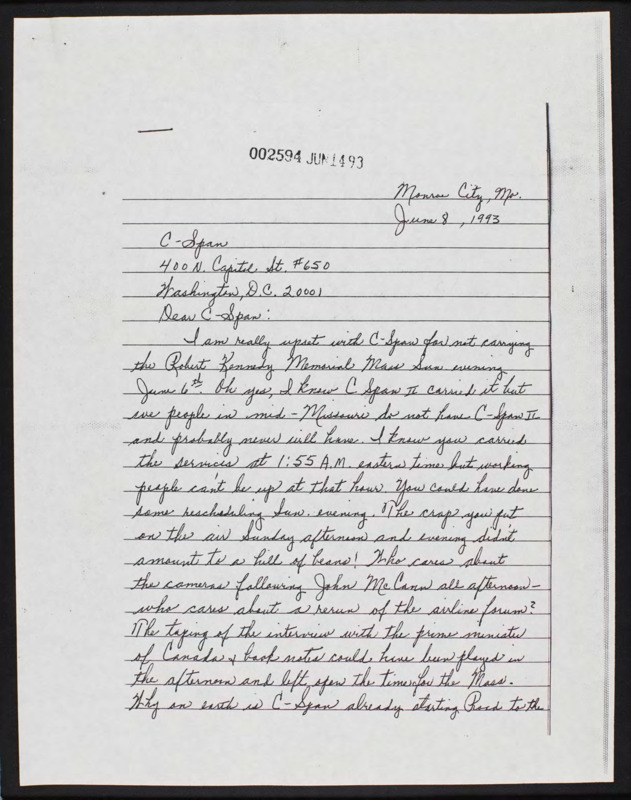 002594 JUN 14 93
Monroe City, Mo.
June 8, 1993
C-Span
400 N. Capitol St. #650
Washington, D.C. 20001
Dear C-Span:
I am really upset with C-Span for not carrying
the Robert Kennedy Memorial Mass Sun evening
June 6th. Oh yes, I know C Span II carried it but
we people in mid-Missouri do not have C-Span II
and probably never will have. I know you carried
the services at 1:55 A.M. eastern time but working
people can't be up at that hour. You could have done
some rescheduling Sun. evening. The crap you put
on the air Sunday afternoon and evening didn't
amount to a hill of beans! Who cares about
the cameras following John McCann all afternoon-
who cares about a rerun of the airline forum?
The taping of the interview with the prime minister
of Canada & book notes could have been played in
the afternoon and left open the time for the Mass.
Why on earth is C-Span already starting Road to the